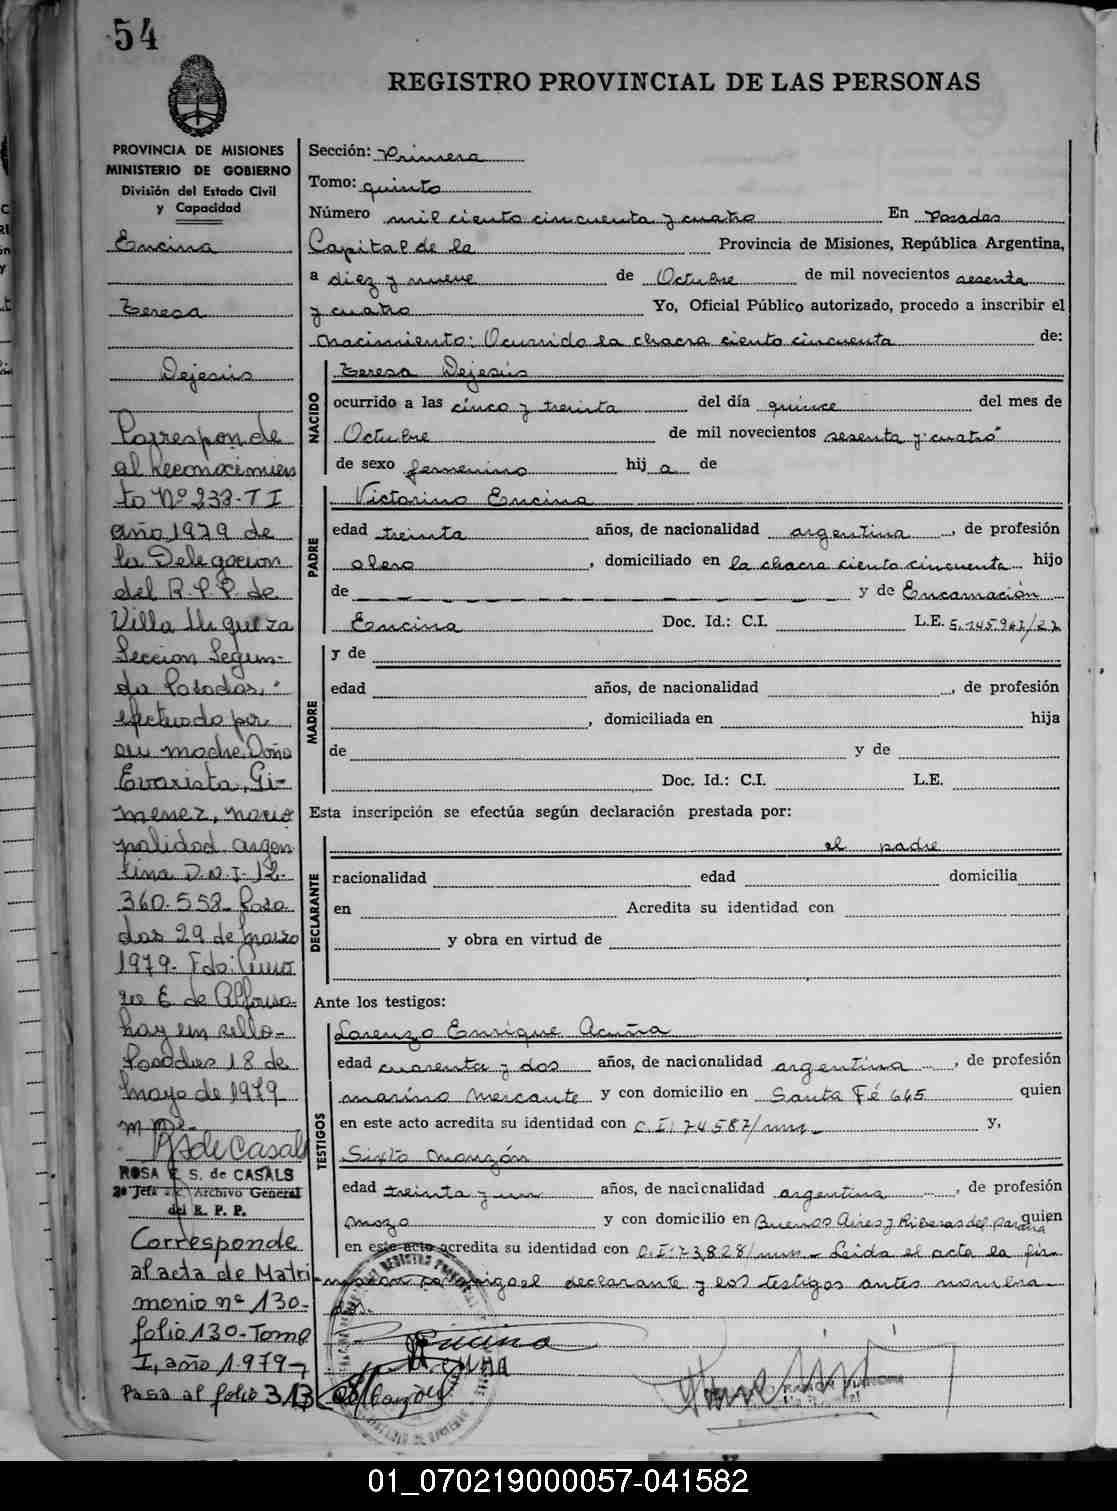 54
REGISTRO PROVINCIAL DE LAS PERSONAS
PROVINCIA DE MISIONES
MINISTERIO DE GOBIERNO
División del Estado Civil
y Capacidad
Encina
Teresa
Dejesús
Corresponde
al Reconocimien
to Nº 233-T I
año 1979 de
la Delegacion
del R.P.P. de
Villa Urquiza
Seccion Segun-
da Posadas,
efectuado por
su madre Doña
Evarista, Gi-
menez, nacio
nalidad argen
tina D.N.I- 12.
360.552- Posa
das 29 de marzo
1979- Fdo:
E. de Alfonso
hay un sello-
Posadas 18 de
Mayo de 1979
mme-
RsdeCasals
ROSA E. S. de CASALS
2º Jefe Archivo General
del R. P. P.
Corresponde
al acta de Matri-
monio nº 130-
folio 130-Tomo
I, año 1.979-
Pasa al folio 313
Sección: Primera
Tomo: quinto
Número mil ciento cincuenta y cuatro En Posadas
Capital de la Provincia de Misiones, República Argentina,
a diez y nueve de Octubre de mil novecientos sesenta
y cuatro Yo, Oficial Público autorizado, procedo a inscribir el
nacimiento: Ocurrido la chacra ciento cincuenta de:
NACIDO
Teresa Dejesús
ocurrido a las cinco y treinta del día quince del mes de
Octubre de mil novecientos sesenta y cuatro
de sexo femenino hij a de
PADRE
Victorino Encina
edad treinta años, de nacionalidad argentina, de profesión
olero, domiciliado en la chacra ciento cincuenta hijo
de y de Encarnación
Encina Doc. Id.: C.I. L.E.
MADRE
y de
edad años, de nacionalidad, de profesión
, domiciliada en hija
de y de
Doc. Id.: C.I. L.E.
Esta inscripción se efectúa según declaración prestada por:
DECLARANTE
el padre
racionalidad edad domicilia
en Acredita su identidad con
y obra en virtud de
Ante los testigos:
TESTIGOS
Lorenzo Enrique Acuña
edad cuarenta y dos años, de nacionalidad argentina, de profesión
marino mercante y con domicilio en Santa Fé 665 quien
en este acto acredita su identidad con C.I: 74587/mns- y,
Sixto Monzón
edad treinta y un años, de nacionalidad argentina, de profesión
mozo y con domicilio en Buenos Aires y Riberas del Paraná quien
en este acto acredita su identidad con C.I:73828/mns- Leida el acta la fir
maron conmigo el declarante y los testigos antes nombra
dos.
Encina
Acuña
Monzón
01_070219000057-041582